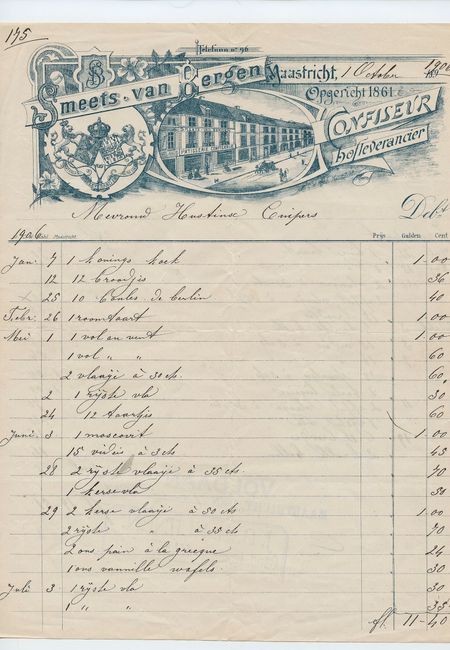 175
Telefoon nº 96
SB
Smeets-van Bergen
Maastricht, 1 October 1906
189
Opgericht 1861.
CONFISEUR
hofleverancier
Mevrouw Hustinx Cuipers Debt
1906 Maastricht Prijs Gulden Cent
Jan: 7 1 konings koek 1.00
12 12 broodjis 36
x 25 10 boules de berlin 40
Febr: 26 1 roomtaart 1.00
Mei 1 1 vol au vent 1.00
1 vol " " 60
2 vlaaije à 30 cts. 60
2 1 rijste vla 30
24 12 taartjis 60
Juni 3 1 moscovit 1.00
15 videis à 3 cts 45
28 2 rijste vlaaije à 35 cts. 70
1 kerse vla 50
29 2 kerse vlaaije à 50 cts 1.00
2 rijste " à 35 cts 70
2 ons pain à la grecque 24
1 ons vannille wafels 30
Juli 3 1 rijste vla 30
1 " " 35
fl. 11-40